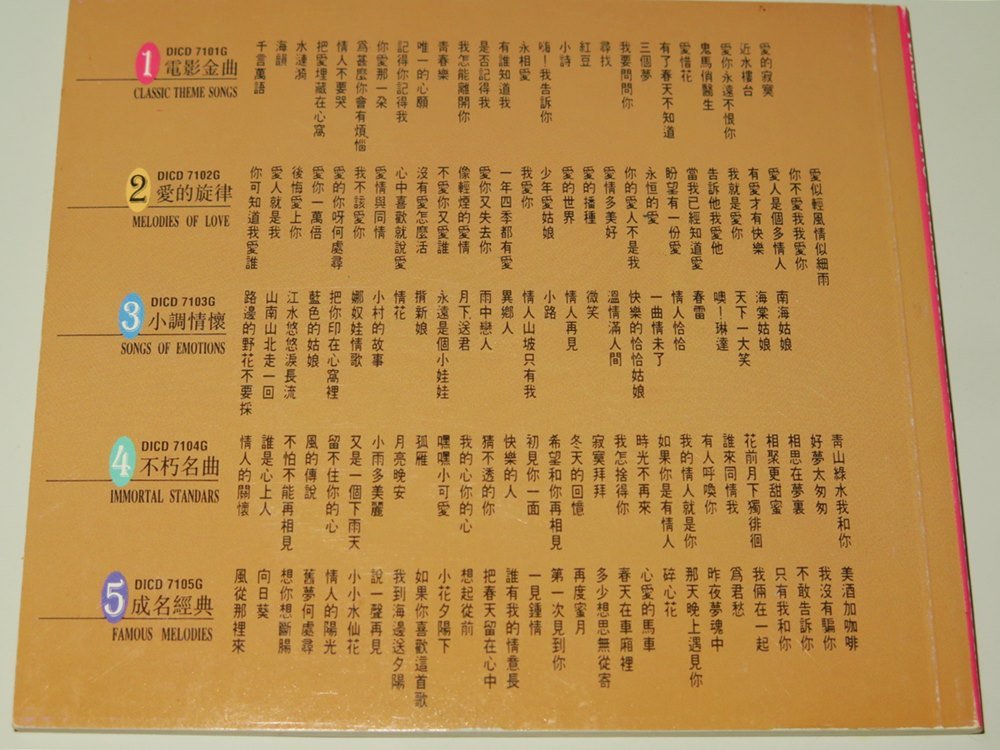 1
DICD 7101G
電影金曲
CLASSIC THEME SONGS
千言萬語
海韻
水漣漪
把愛埋藏在心窩
情人不要哭
爲甚麼你會有煩惱
你愛那一朵
記得你記得我
唯一的心願
青春樂
我怎能離開你
是否記得我
有誰知道我
永相愛
嗨！我告訴你
小詩
紅豆
尋找
我要問問你
三個夢
有了春天不知道
愛惜花
鬼馬俏醫生
愛你永遠不恨你
近水樓台
愛的寂寞
2
DICD 7102G
愛的旋律
MELODIES OF LOVE
你可知道我愛誰
愛人就是我
後悔愛上你
愛你一萬倍
愛的你呀何處尋
我不該愛你
愛情與同情
心中喜歡就說愛
沒有愛怎麼活
不愛你又愛誰
像輕煙的愛情
愛你又失去你
一年四季都有愛
我愛你
少年愛姑娘
愛的世界
愛的播種
愛情多美好
你的愛人不是我
永恒的愛
盼望有一份愛
當我已經知道愛
告訴他我愛他
我就是愛你
有愛才有快樂
愛人是個多情人
你不愛我我愛你
愛似輕風情似細雨
3
DICD 7103G
小調情懷
SONGS OF EMOTIONS
路邊的野花不要採
山南山北走一回
江水悠悠淚長流
藍色的姑娘
把你印在心窩裡
娜奴娃情歌
小村的故事
情花
揹新娘
永遠是個小娃娃
月下送君
雨中戀人
異鄉人
情人山坡只有我
小路
情人再見
微笑
溫情滿人間
快樂的恰恰姑娘
一曲情未了
情人恰恰
春雷
噢！琳達
天下一大笑
海棠姑娘
南海姑娘
4
DICD 7104G
不朽名曲
IMMORTAL STANDARS
情人的關懷
誰是心上人
不怕不能再相見
風的傳說
留不住你的心
又是一個下雨天
小雨多美麗
月亮晚安
孤雁
嘿嘿小可愛
我的心你的心
猜不透的你
快樂的人
初見你一面
希望和你再相見
冬天的回憶
寂寞拜拜
我怎捨得你
時光不再來
如果你是有情人
我的情人就是你
有人呼喚你
誰來同情我
花前月下獨徘徊
相聚更甜蜜
相思在夢裏
好夢太匆匆
青山綠水我和你
5
DICD 7105G
成名經典
FAMOUS MELODIES
風從那裡來
向日葵
想你想斷腸
舊夢何處尋
情人的陽光
小小水仙花
說一聲再見
我到海邊送夕陽
如果你喜歡這首歌
小花夕陽下
想起從前
把春天留在心中
誰有我的情意長
一見鍾情
第一次見到你
再度蜜月
多少想思無從寄
春天在車廂裡
心愛的馬車
碎心花
那天晚上遇見你
昨夜夢魂中
爲君愁
我倆在一起
只有我和你
不敢告訴你
我沒有騙你
美酒加咖啡